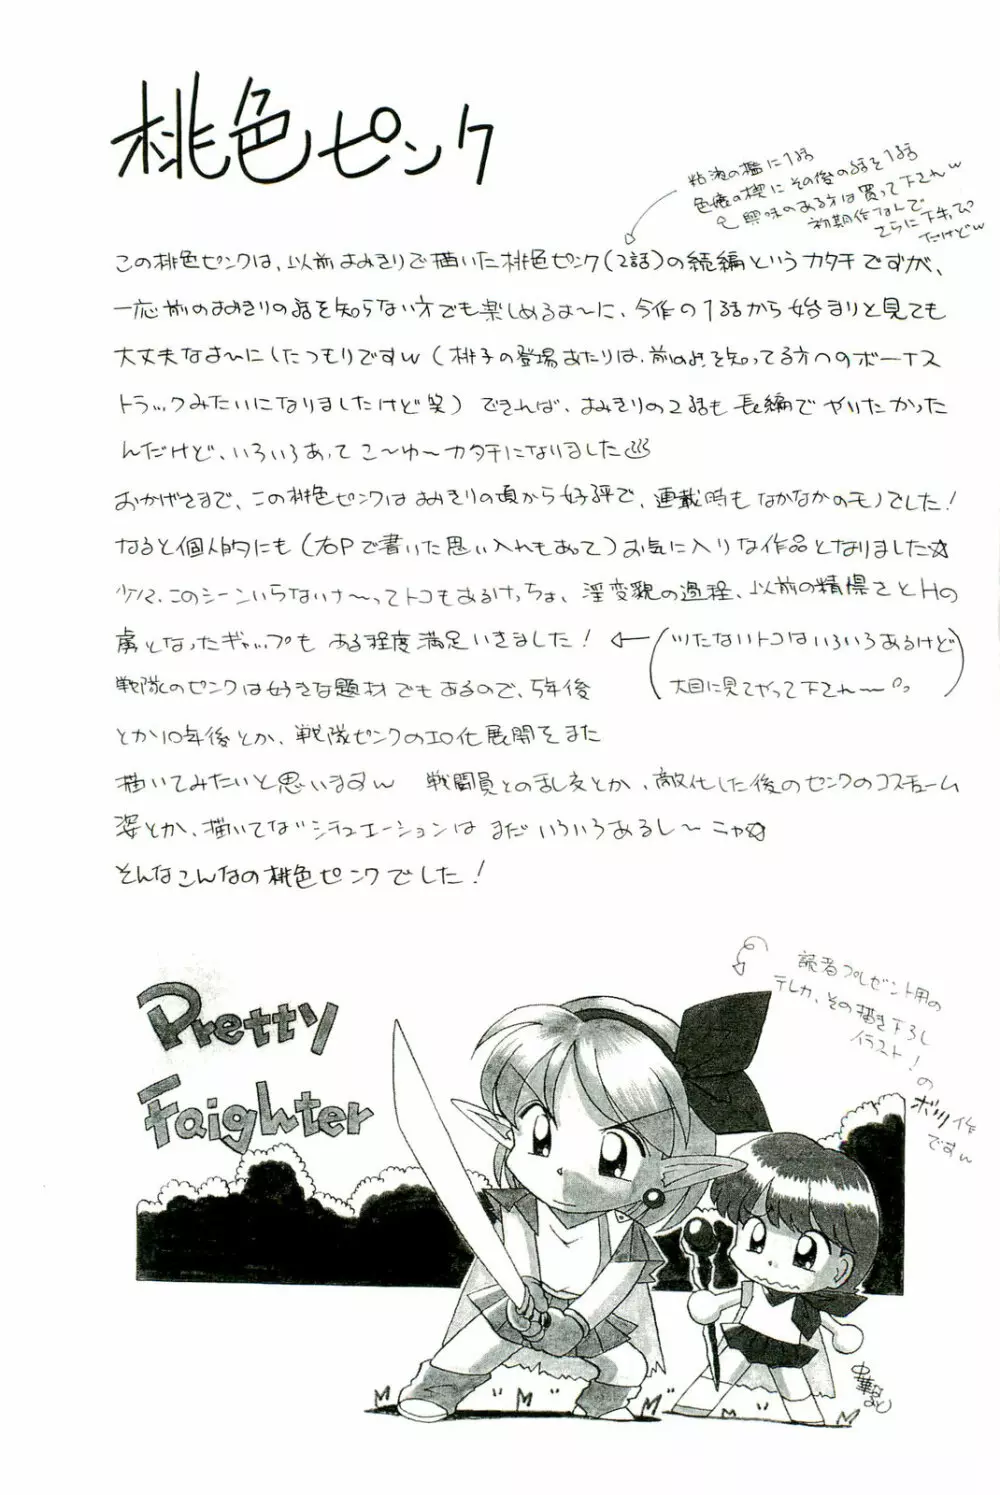 桃色ピンク
粘液の檻に1話
色慾の楔にその後の話を1話
興味のある方は買って下されw
初期作なんで
さらに下手っぴ
だけどw
この桃色ピンクは、以前よみきりで描いた桃色ピンク(2話)の続編というカタチですが、
一応前のよみきりの話を知らない方でも楽しめるよ〜に、今作の1話から始まりと見ても
大丈夫なよ〜にしたつもりですw(桃子の登場あたりは、前のよみを知ってる方へのボーナス
トラックみたいになりましたけど笑)できれば、よみきりの2話も長編でやりたかった
んだけど、いろいろあってこ〜ゆ〜カタチになりました
おかげさまで、この桃色ピンクはよみきりの頃から好評で、連載時もなかなかのモノでした!
なると個人的にも(右Pで書いた思い入れもあって)お気に入りな作品となりました☆
少々、このシーンいらないナ〜ってトコもあるけっちょ、淫変貌の過程、以前の精悍さとHの
虜となったギャップもある程度満足いきました!
←(ツたないトコはいろいろあるけど
大目に見てやって下され〜)
戦隊のピンクは好きな題材でもあるので、5年後
とか10年後とか、戦隊ピンクのエロ化展開をまた
描いてみたいと思いますw 戦闘員との乱交とか、敵化した後のピンクのコスチューム
姿とか、描いてないシチュエーションはまだいろいろあるし〜ニャ☆
そんなこんなの桃色ピンクでした!
読者プレゼント用の
テレカ、その描き下ろし
イラスト!
の
ボツ作
ですw
Pretty
Faighter
中華なると